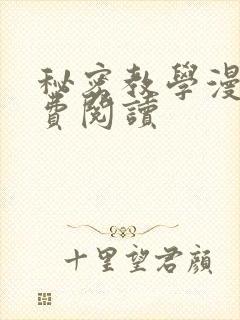 秘密教學漫
費閱讀
十里望君顏